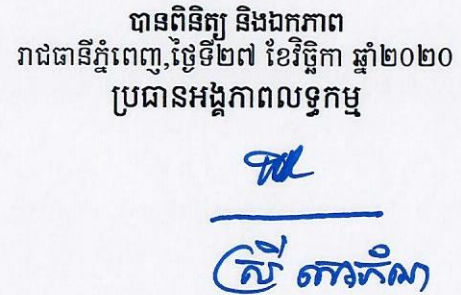 បានពិនិត្យ និងឯកភាព
រាជធានីភ្នំពេញ,ថ្ងៃទី២៧ ខែវិច្ឆិកា ឆ្នាំ២០២០
ប្រធានអង្គភាពលទ្ធកម្ម
ស្រី